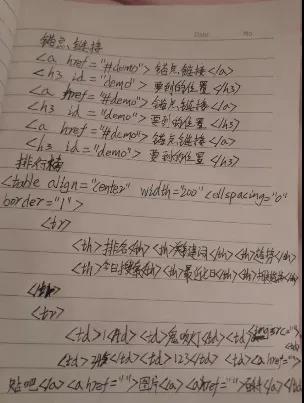 Date. No.
锚点链接
<a href="#demo">锚点链接</a>
<h3 id="demo">要到的位置</h3>
<a href="#demo">锚点链接</a>
<h3 id="demo">要到的位置</h3>
<a href="#demo">锚点链接</a>
<h3 id="demo">要到的位置</h3>
排行榜
<table align="center" width="500" cellspacing="0"
border="1">
<tr>
<th>排名</th><th>关键词</th><th>趋势</th>
<th>今日搜索</th><th>最近七日</th><th>相关链接</th>
<tr>
<td>1</td><td>鬼吹灯</td><td>
</td><td>123</td><td><a href="">
贴吧</a><a href="">图片</a><a href="">百科</a></td>